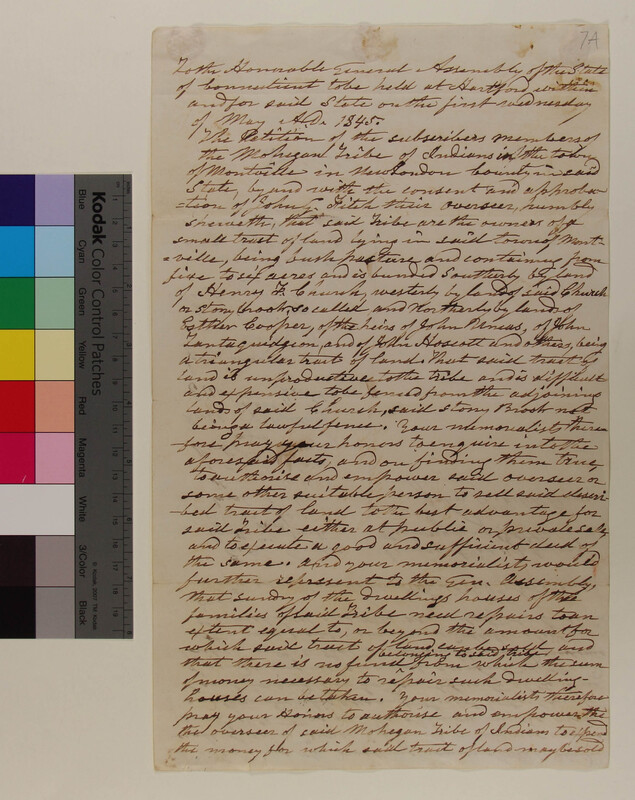 7A
To the Honorable General Assembly of the State
of Connecticut to be held at Hartford, within
and for said State on the first Wednesday
of May A.D. 1845.
The Petition of the subscribers members of
the Mohegan Tribe of Indians in the town
of Montville in New London County in said
State, by and with the consent and approba-
-tion of John G. Fitch their overseer, humbly
sheweth, that said Tribe are the owners of a
small tract of land lying in said town of Mont-
-ville, being bush pasture and containing from
five to six acres and is bounded Southerly by land
of Henry F. Church, westerly by land of said Church
or Stony brook, so called and Northerly by lands of
Esther Cooper, of the heirs of John Uncas, of John
Tantaquidgeon, and of John Hoscott and others, being
a triangular tract of land. That said tract of
land is unproductive to the tribe and is difficult
and expensive to be fenced from the adjoining
land of said Church, said Stony Brook not
being a lawful fence. Your memorialists there-
-fore pray your honors to enquire into the
aforesaid facts, and on finding them true,
to authorise and empower said overseer or
some other suitable person to sell said descri-
-bed tract of land to the best advantage for
said Tribe either at public or private sale,
and to execute a good and sufficient deed of
the same. And your memorialists would
further represent to the Gen. Assembly,
that sundry of the dwellings houses of the
families of said Tribe need repairs to an
extent equal to, or beyond the amount for
which said tract of land can be sold, and
belonging to said tribe
that there is no fund from which the sum
of money necessary to repair such dwelling-
houses can be taken. Your memorialists therefore
pray your Honors to authorise and empower the
the overseer of said Mohegan Tribe of Indians to expend
the money for which said tract of land may be sold
Kodak
Color Control Patches
Blue
Cyan
Green
Yellow
Red
Magenta
White
3/Color
Black
© Kodak, 2007 TM: Kodak